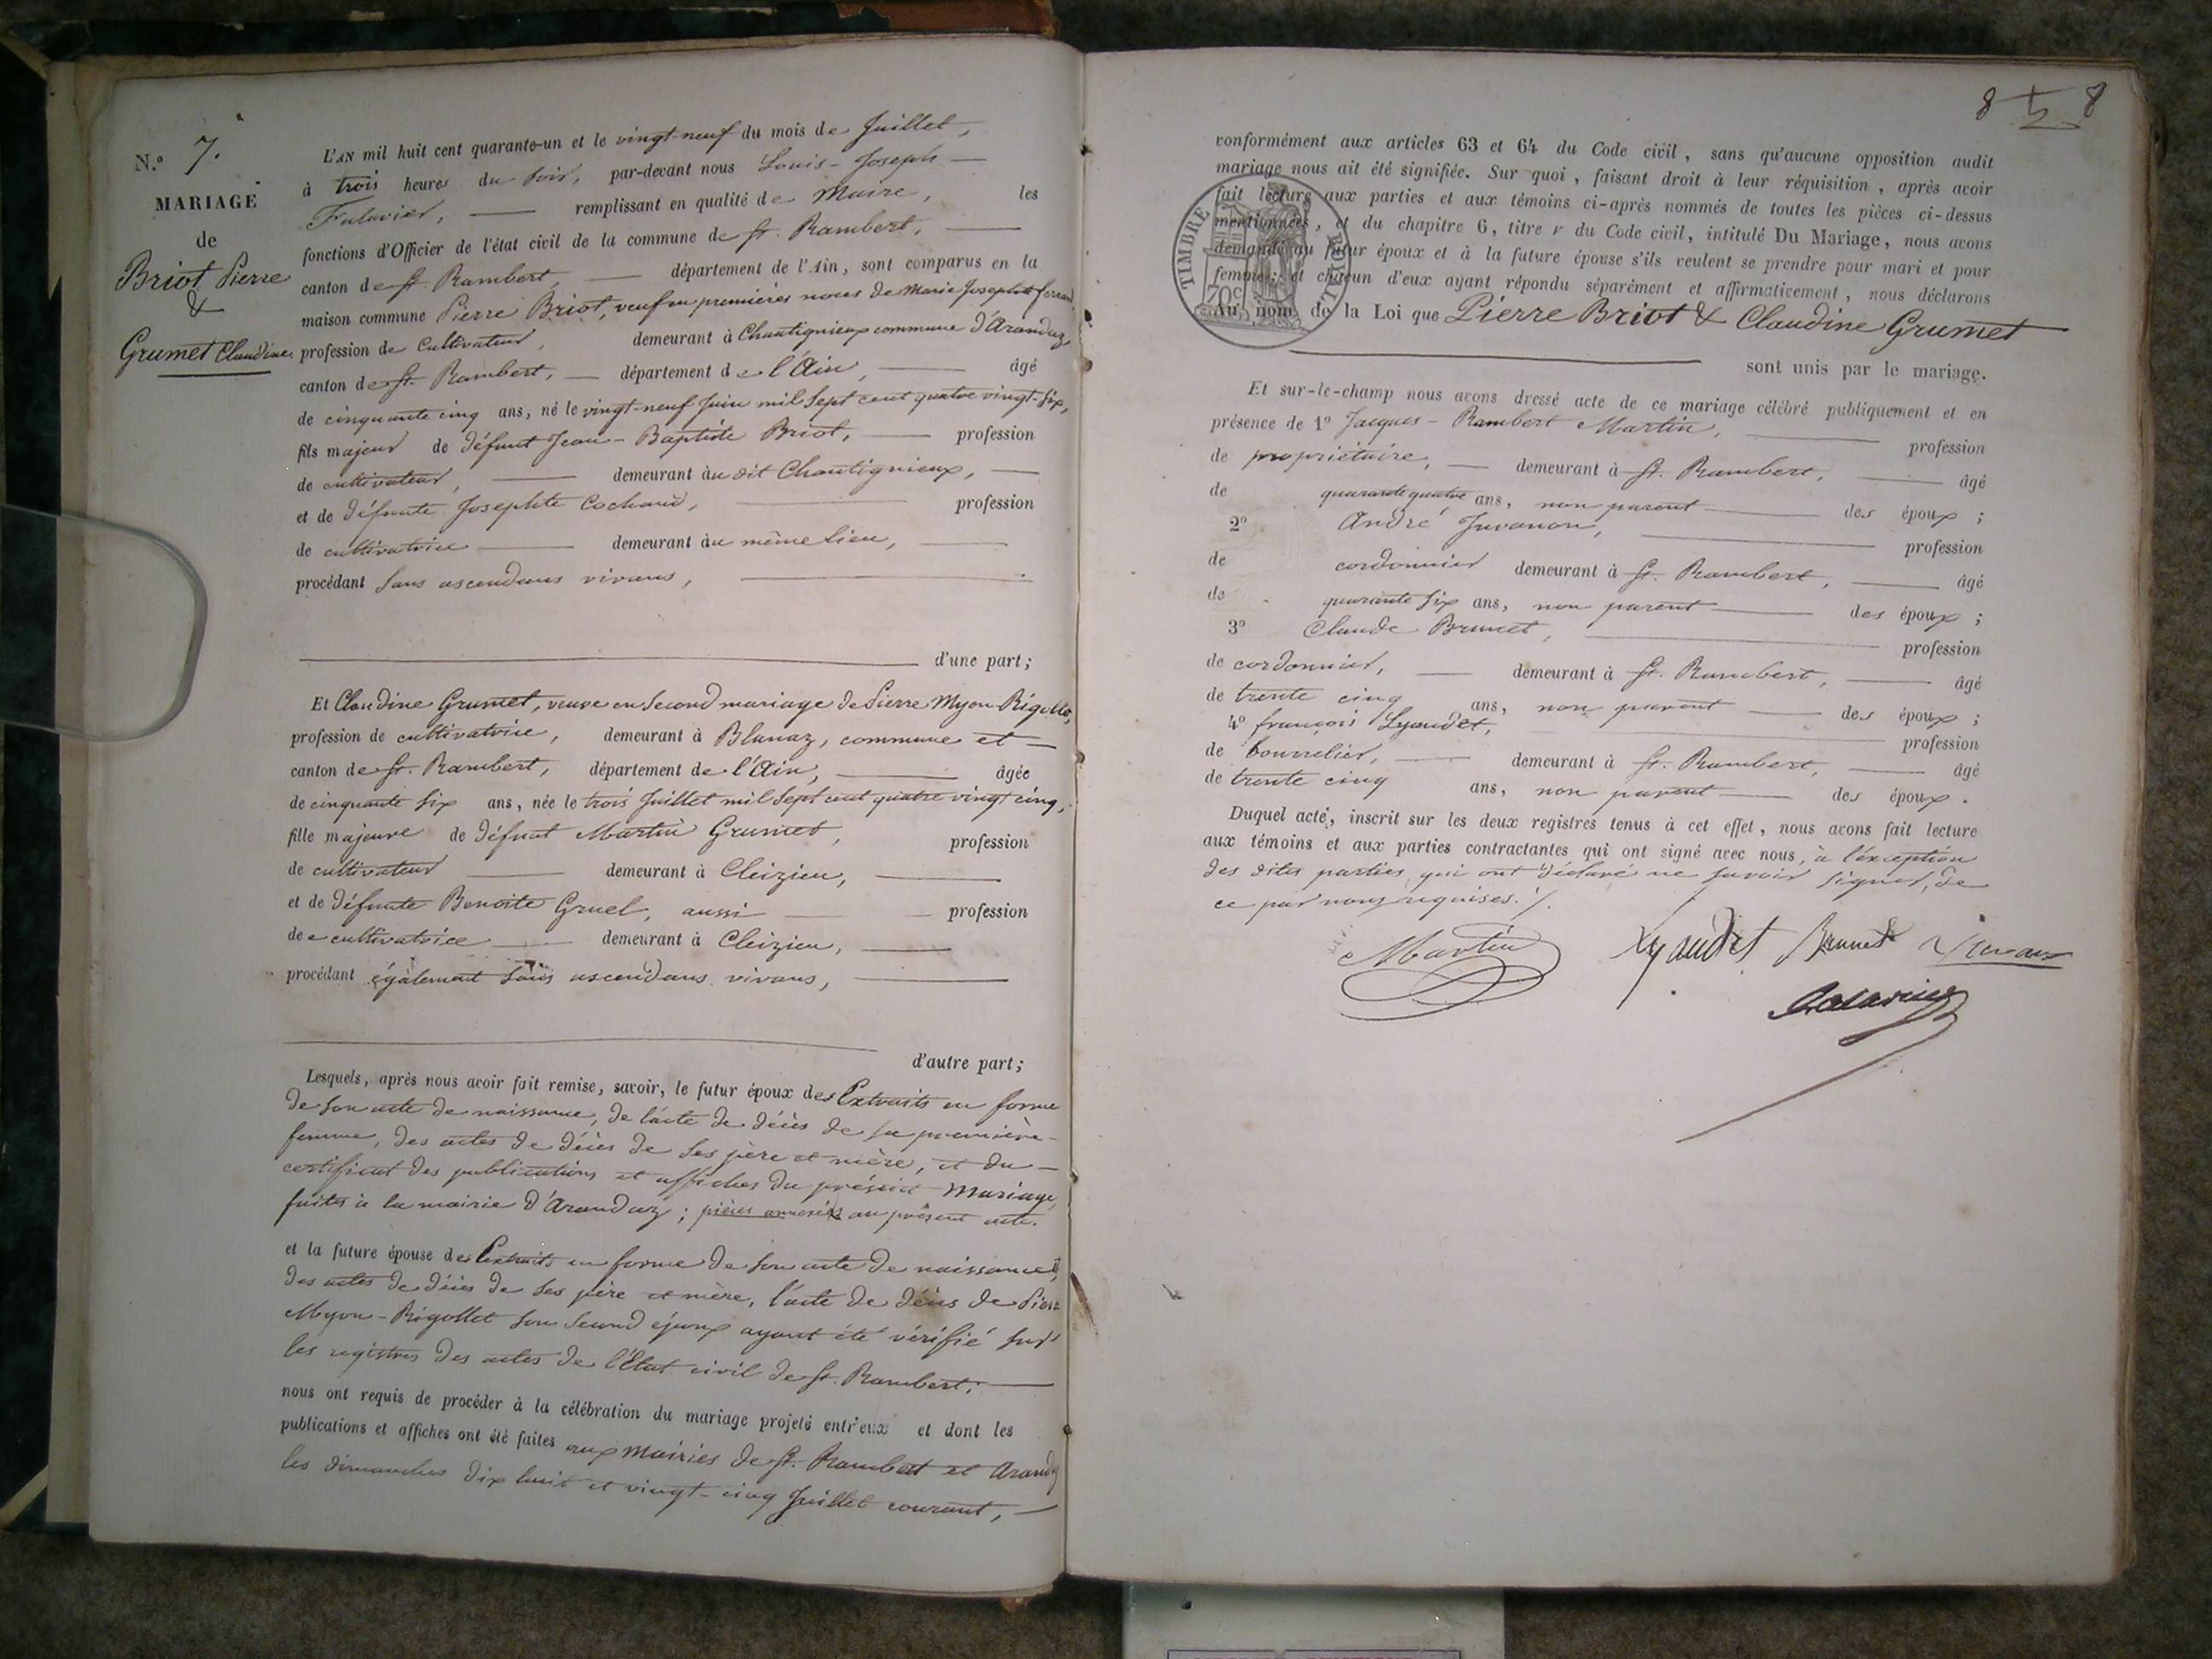 N.º 7.
MARIAGE
de
Briot Pierre
&
Grumet Claudine
L'AN mil huit cent quarante-un et le vingt-neuf du mois de Juillet,
à trois heures du soir, par-devant nous Louis-Joseph
Falavier, remplissant en qualité de Maire, les
fonctions d'Officier de l'état civil de la commune de St. Rambert,
canton de St. Rambert, département de l'Ain, sont comparus en la
maison commune Pierre Briot, veuf en premières noces de Marie Josephte
profession de Cultivateur, demeurant à Chantignieux commune d'Arandaz,
canton de St. Rambert, département de l'Ain, âgé
de cinquante cinq ans, né le vingt-neuf Juin mil sept cent quatre vingt-six,
fils majeur de défunt Jean-Baptiste Briot, profession
de cultivateur, demeurant au dit Chantignieux,
et de défunte Josephte Cochand, profession
de cultivatrice demeurant au même lieu,
procédant sans ascendans vivans,
d'une part;
Et Claudine Grumet, veuve en second mariage de Pierre Myon-Rigollet,
profession de cultivatrice, demeurant à Blanaz, commune et
canton de St. Rambert, département de l'Ain, âgée
de cinquante six ans, née le trois Juillet mil sept cent quatre vingt cinq,
fille majeure de défunt Martin Grumet, profession
de cultivateur demeurant à Cleizieu,
et de défunte Benoite Gruel, aussi profession
de cultivatrice demeurant à Cleizieu,
procédant également sans ascendans vivans,
d'autre part;
Lesquels, après nous avoir fait remise, savoir, le futur époux des Extraits en forme
de son acte de naissance, de l'acte de décès de sa première
femme, des actes de décès de ses père et mère, et du
certificat des publications et affiches du présent mariage,
faites à la mairie d'Arandaz; pièces annexées au présent acte.
et la future épouse des Extraits en forme de son acte de naissance,
des actes de décès de ses père et mère, l'acte de décès de Pierre
Myon-Rigollet son second époux ayant été vérifié sur
les registres des actes de l'État civil de St. Rambert;
nous ont requis de procéder à la célébration du mariage projeté entr'eux et dont les
publications et affiches ont été faites aux mairies de St. Rambert et Arandaz
les dimanches dix huit et vingt-cinq Juillet courant,
8 8
conformément aux articles 63 et 64 du Code civil, sans qu'aucune opposition audit
mariage nous ait été signifiée. Sur quoi, faisant droit à leur réquisition, après avoir
fait lecture aux parties et aux témoins ci-après nommés de toutes les pièces ci-dessus
mentionnées, et du chapitre 6, titre V du Code civil, intitulé Du Mariage, nous avons
demandé au futur époux et à la future épouse s'ils veulent se prendre pour mari et pour
femme; et chacun d'eux ayant répondu séparément et affirmativement, nous déclarons
Au nom de la Loi que Pierre Briot & Claudine Grumet
TIMBRE ROYAL
70c
sont unis par le mariage.
Et sur-le-champ nous avons dressé acte de ce mariage célébré publiquement et en
présence de 1º Jacques-Rambert Martin, profession
de propriétaire, demeurant à St. Rambert, âgé
de quarante quatre ans, non parent des époux;
2º André Juvanon, profession
de cordonnier demeurant à St. Rambert, âgé
de quarante six ans, non parent des époux;
3º Claude Brunet, profession
de cordonnier, demeurant à St. Rambert, âgé
de trente cinq ans, non parent des époux;
4º françois Lyaudet, profession
de bourrelier, demeurant à St. Rambert, âgé
de trente cinq ans, non parent des époux.
Duquel acte, inscrit sur les deux registres tenus à cet effet, nous avons fait lecture
aux témoins et aux parties contractantes qui ont signé avec nous, à l'exception
des dites parties qui ont déclaré ne savoir signer, de
ce par nous requises./.
Martin Lyaudet Brunet Juvanon
Falavier